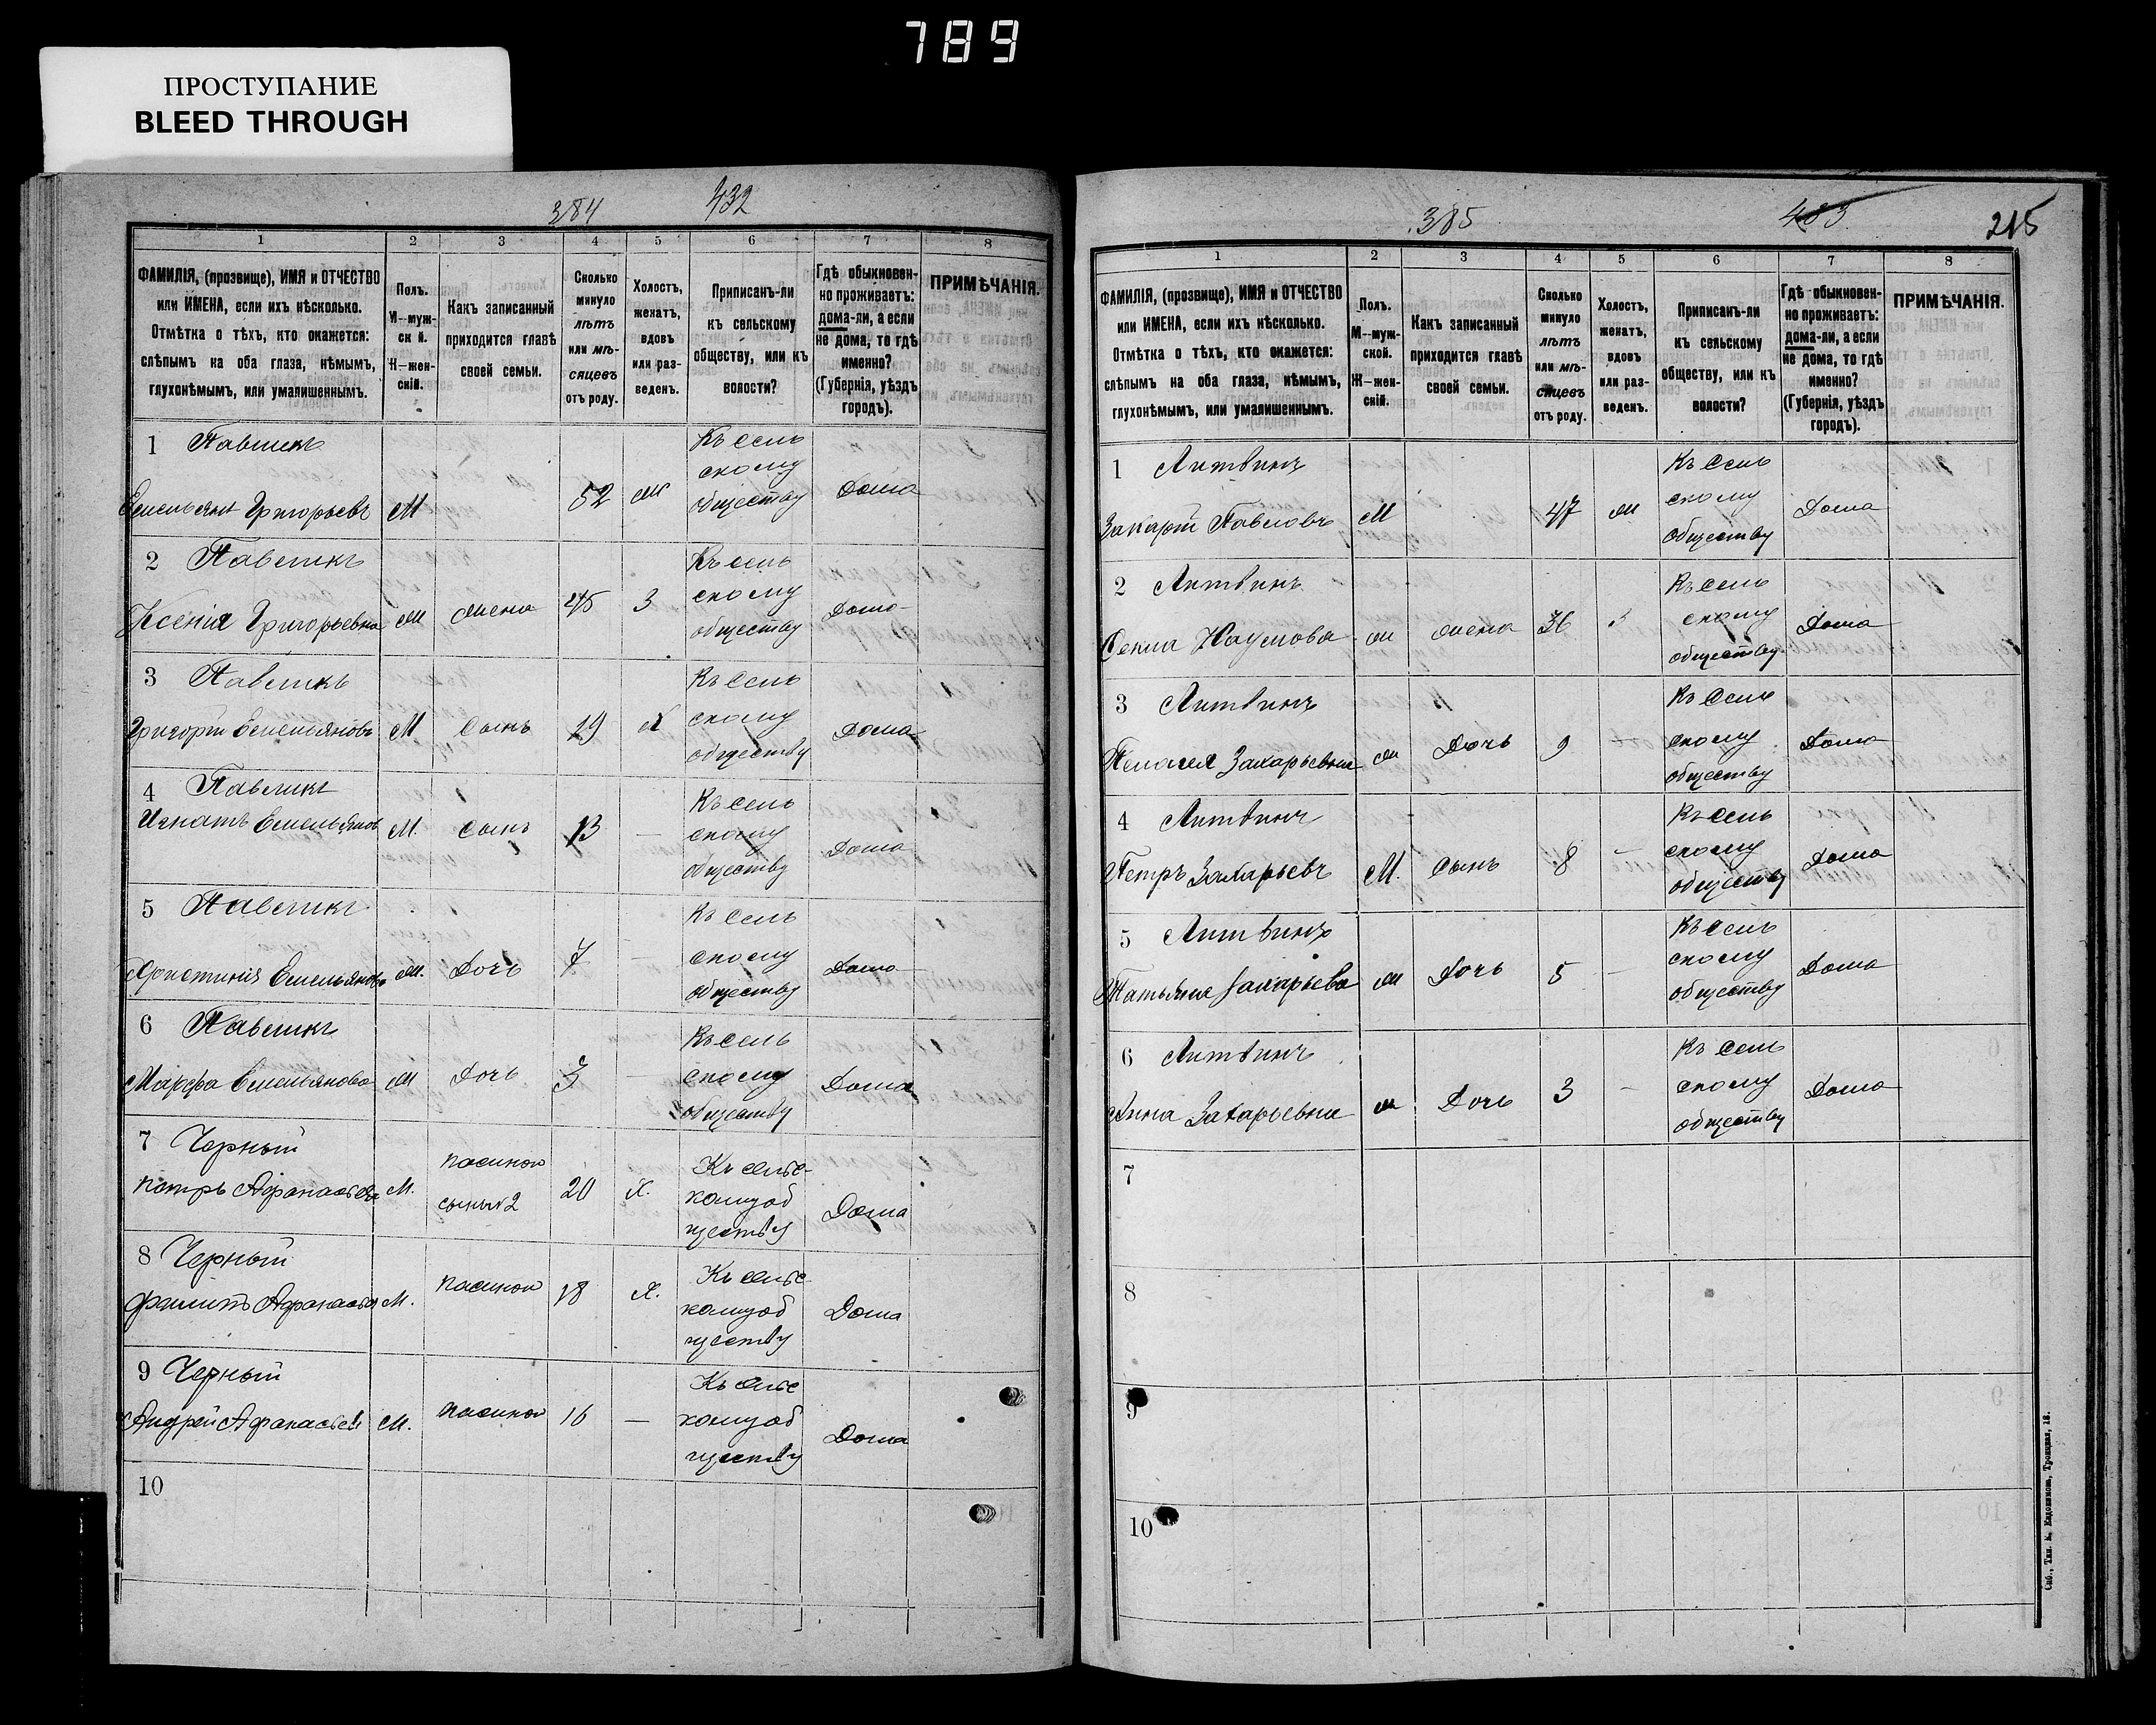 789
ПРОСТУПАНИЕ
BLEED THROUGH
384 432
1 2 3 4 5 6 7 8
ФАМИЛІЯ, (прозвище), ИМЯ и ОТЧЕСТВО
или ИМЕНА, если ихъ нѣсколько.
Отмѣтка о тѣхъ, кто окажется:
слѣпымъ на оба глаза, нѣмымъ,
глухонѣмымъ, или умалишеннымъ.
Полъ.
М—муж-
ской.
Ж—жен-
скій.
Какъ записанный
приходится главѣ
своей семьи.
Сколько
минуло
лѣтъ
или мѣ-
сяцевъ
отъ роду.
Холостъ,
женатъ,
вдовъ
или раз-
веденъ.
Приписанъ-ли
къ сельскому
обществу, или къ
волости?
Гдѣ обыкновен-
но проживаетъ:
дома-ли, а если
не дома, то гдѣ
именно?
(Губернія, уѣздъ
городъ).
ПРИМѢЧАНІЯ.
1 Павликъ
Емельянъ Григорьевъ М 52 ж Къ сель скому обществу Дома
2 Павликъ
Ксенія Григорьевна ж жена 45 З Къ сель скому обществу Дома
3 Павликъ
Григорій Емельяновъ М сынъ 19 Х Къ сель скому обществу Дома
4 Павликъ
Игнатъ Емельяновъ М. сынъ 13 — Къ сель скому обществу Дома
5 Павликъ
Христинія Емельянова ж. Дочь 7 — Къ сель скому обществу Дома
6 Павликъ
Марфа Емельянова ж Дочь 3 — Къ сель скому обществу Дома
7 Черный
Петръ Афанасьевъ М. пасинок сынъ №2 20 Х. Къ сельс- кому об ществу Дома
8 Черный
Филипъ Афанасьев М. пасинок 18 Х. Къ сельс кому об ществу Дома
9 Черный
Андрей Афанасьев М. пасинок 16 — Къ сельс кому об ществу Дома
10
385 433 215
1 2 3 4 5 6 7 8
ФАМИЛІЯ, (прозвище), ИМЯ и ОТЧЕСТВО
или ИМЕНА, если ихъ нѣсколько.
Отмѣтка о тѣхъ, кто окажется:
слѣпымъ на оба глаза, нѣмымъ,
глухонѣмымъ, или умалишеннымъ.
Полъ.
М—муж-
ской.
Ж—жен-
скій.
Какъ записанный
приходится главѣ
своей семьи.
Сколько
минуло
лѣтъ
или мѣ-
сяцевъ
отъ роду.
Холостъ,
женатъ,
вдовъ
или раз-
веденъ.
Приписанъ-ли
къ сельскому
обществу, или къ
волости?
Гдѣ обыкновен-
но проживаетъ:
дома-ли, а если
не дома, то гдѣ
именно?
(Губернія, уѣздъ
городъ).
ПРИМѢЧАНІЯ.
1 Литвинъ
Захарій Павловъ М 47 ж Къ сель скому обществу Дома
2 Литвинъ
Наумова ж жена 36 З Къ сель скому обществу Дома
3 Литвинъ
Пелагея Захарьевна ж Дочь 9 — Къ сель скому обществу Дома
4 Литвинъ
Петръ Захарьевъ М. сынъ 8 — Къ сель скому обществу Дома
5 Литвинъ
Татьяна Захарьева ж Дочь 5 — Къ сель скому обществу Дома
6 Литвинъ
Анна Захарьевна ж Дочь 3 — Къ сель скому обществу Дома
7
8
9
10
Спб., Тип. М. Евдокимова, Троицкая, 18.